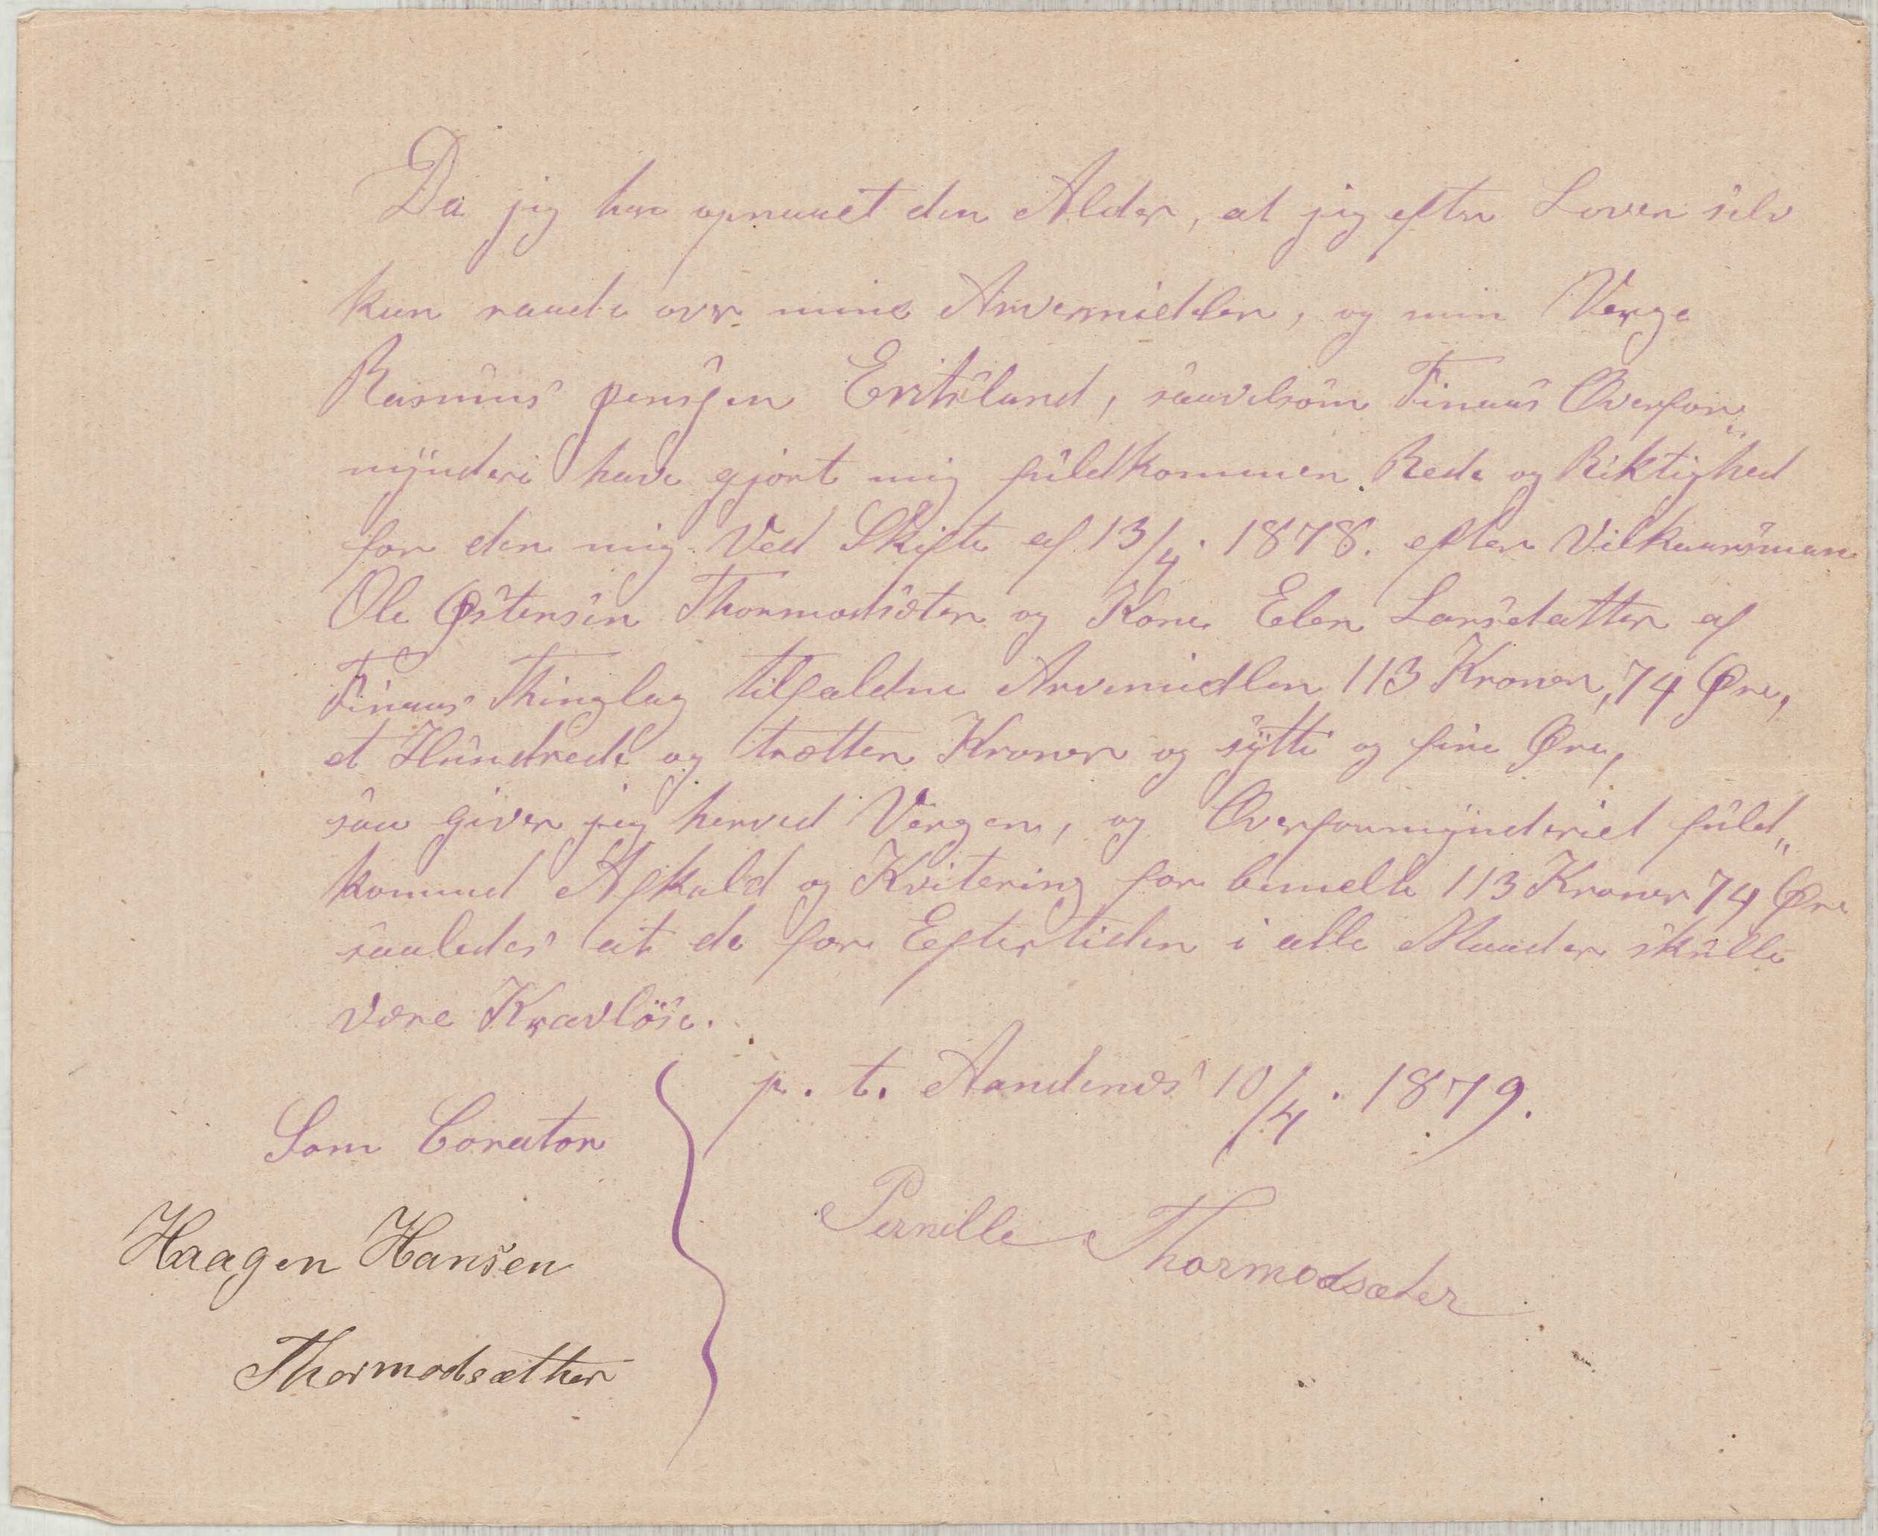 Da jig har opnaaet den Alder, at jig efter Loven selv
kan raade over mine Arvemidler, og min Verge
Rasmus Jensen Eritsland, saavelsom Finaas Overfor„
mynderi have gjort mig fuldkommen Rede og Riktighed
for den mig Ved Skifte af 13/4. 1878. efter Vilkaarsman
Ole Østensen Thormodsæter og Kone Elen Larsdatter af
Finaas Thinglag tilfaldne Arvemidler 113 Kroner, 74 Øre,
et Hundrede og trætten Kroner og sytti og fire Øre,
saa giver jeg herved Vergen, og Overformynderiet fuld„
kommed Afkald og Kvitering for bemelte 113 Kroner 74 Øre
saaledes at de for Eftertiden i alle Maader skulle
være Kravlöse.
p. t. Aandenæs 10/4. 1879.
Som Corator
Pernille Thormodsæter
Haagen Hansen
Thormodsæther